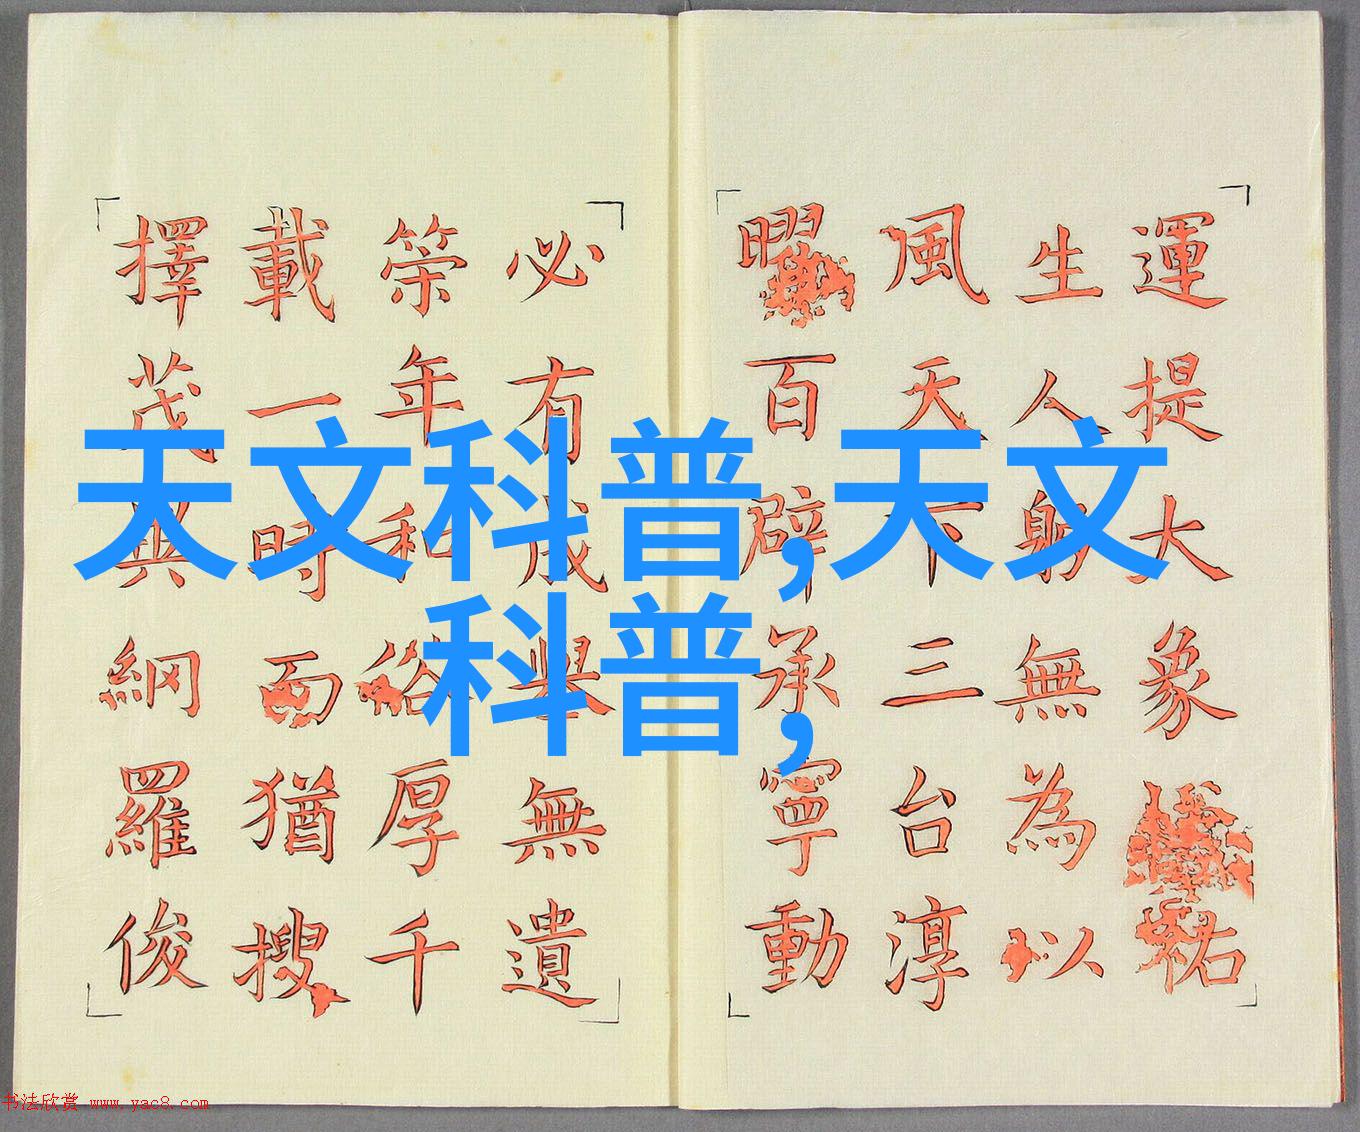 天文科普,天文
科普,
運提大象祐
生人躬無為以
風天下三台淳
曜百辟承寧動
必有成舉無遺
筞年和厚千
載一時而猶搜
擇茂異網羅俊
书法欣赏 www.yac8.com